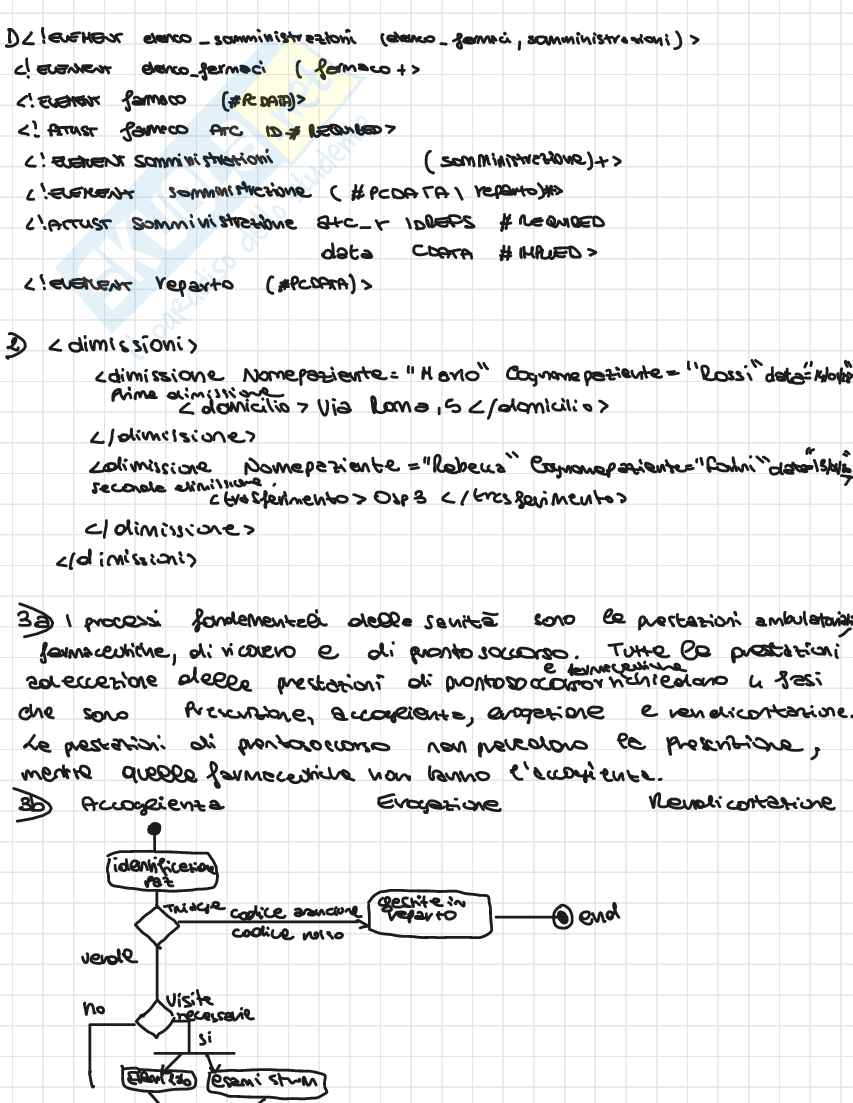 1) <!ELEMENT elenco_somministrazioni (elenco_farmaci, somministrazioni)>
<!ELEMENT elenco_farmaci (farmaco+>
<!ELEMENT farmaco (#PCDATA)>
<!ATTLIST farmaco ATC ID #REQUIRED>
<!ELEMENT somministrazioni (somministrazione)+>
<!ELEMENT somministrazione (#PCDATA | reparto)*>
<!ATTLIST somministrazione atc_r IDREFS #REQUIRED
data CDATA #IMPLIED>
<!ELEMENT reparto (#PCDATA)>
2) <dimissioni>
<dimissione Nomepaziente="Mario" Cognomepaziente="Rossi" data=
Prima dimissione
<domicilio> Via Roma, 5 </domicilio>
</dimissione>
<dimissione Nomepaziente="Rebecca" Cognomepaziente= data=
seconda dimissione.
<trasferimento> Osp3 </trasferimento>
</dimissione>
</dimissioni>
3a) I processi fondamentali della sanità sono le prestazioni ambulatoriali,
farmaceutiche, di ricovero e di pronto soccorso. Tutte le prestazioni
ad eccezione delle prestazioni di pronto soccorso e farmaceutiche richiedono 4 fasi
che sono Prescrizione, accoglienza, erogazione e rendicontazione.
Le prestazioni di pronto soccorso non prevedono la prescrizione,
mentre quelle farmaceutiche non hanno l'accoglienza.
3b) Accoglienza Erogazione Rendicontazione
identificazione
paz
Triage codice arancione
codice rosso
gestite in
reparto
end
verde
no
Visite
necessarie
si
esami strum
EKUONE.net
il paradiso dello studente